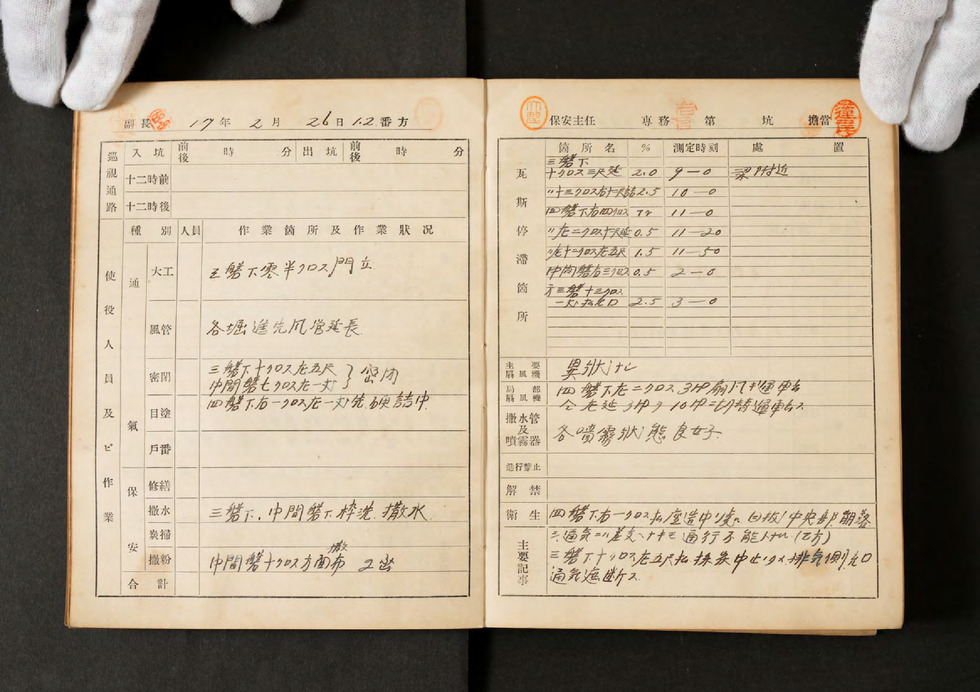 副長 17年 2月 26日 1.2番方
巡視通路 入坑 前後 時 分 出坑 前後 時 分
十二時前
十二時後
使役人員及ビ作業
種別 人員 作業箇所及作業狀況
通氣
大工 五磐下零半クロス門立
風管 各堀進先風管延長
密閉 三磐下十クロス左五尺
中間磐七クロス左一対 } 密閉
目塗 四磐下右一クロス左一対先
戶番
保安
修繕
撒水 三磐下、中間磐下枠洗、撒水
炭掃
撒粉 中間磐十クロス方面撒布
合計
保安主任 專務 第 坑 擔當
瓦斯停滯箇所
箇所名 % 測定時刻 處置
三磐下
十クロス三尺延 2.0 9-0 梁附近
〃十三クロス右十尺 2.5 10-0
四磐下右四クロス 11-0
〃左二クロス十尺延 0.5 11-20
〃左十二クロス左五尺 1.5 11-50
中間磐右三クロス 0.5 2-0
三磐十三クロス
2.5 3-0
主要扇風機 異狀ナシ
局部扇風機 四磐下左二クロス3馬扇風機運轉
撒水管及噴霧器 各噴霧狀態良好
進行禁止
解禁
衛生
主要記事
四磐下右一クロス 中央部崩落
通氣ニハ差支ヘナキモ通行不能トナル(乙方)
三磐下十クロス左五尺払採炭中止シタ 排氣側
通氣遮斷ス